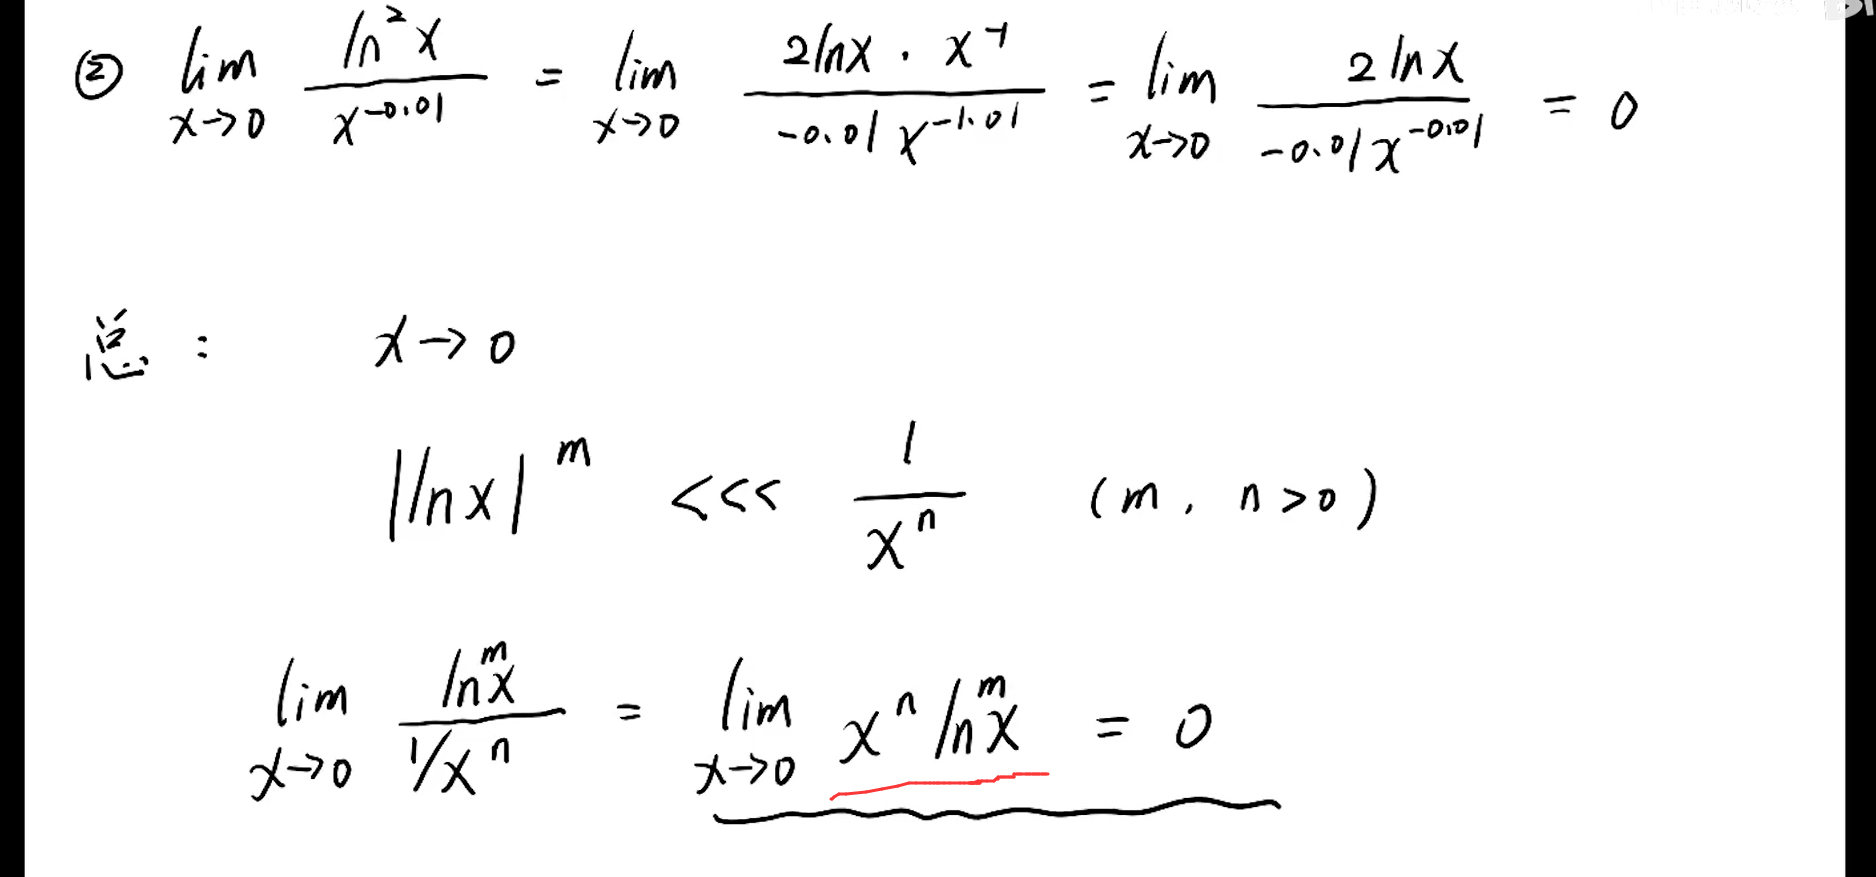 ② lim x→0 ln²x / x^-0.01 = lim x→0 2lnx · x^-1 / -0.01x^-1.01 = lim x→0 2lnx / -0.01x^-0.01 = 0
总: x→0
|lnx|^m <<< 1/x^n (m, n>0)
lim x→0 ln^m x / 1/x^n = lim x→0 x^n ln^m x = 0